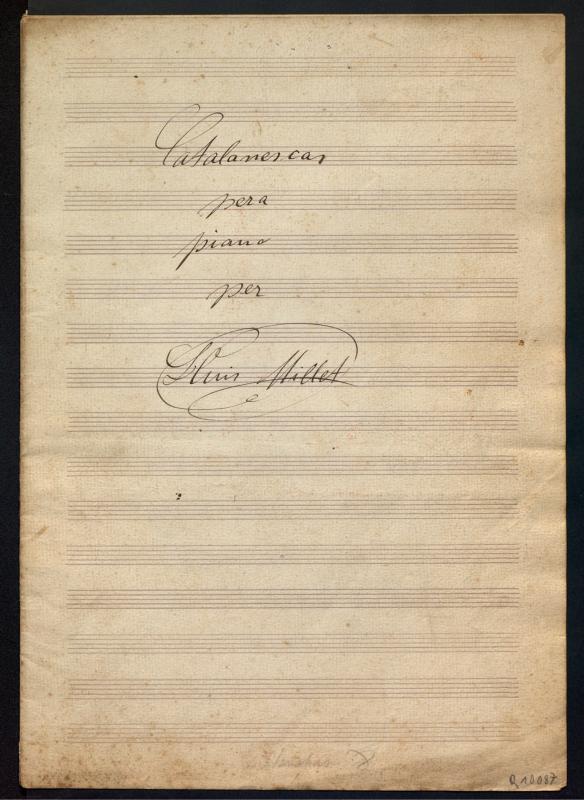 Catalanescas
pera
piano
per
Lluis Millet
Q 10087